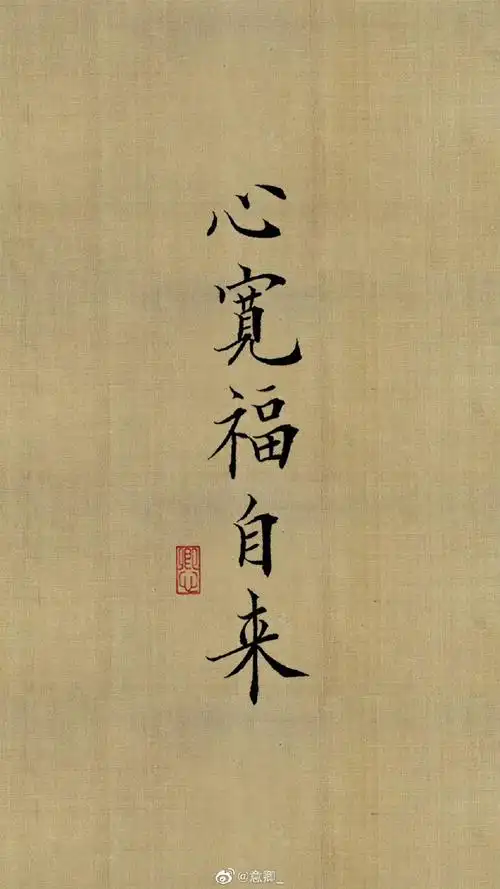 心寬福自来
@意卿_